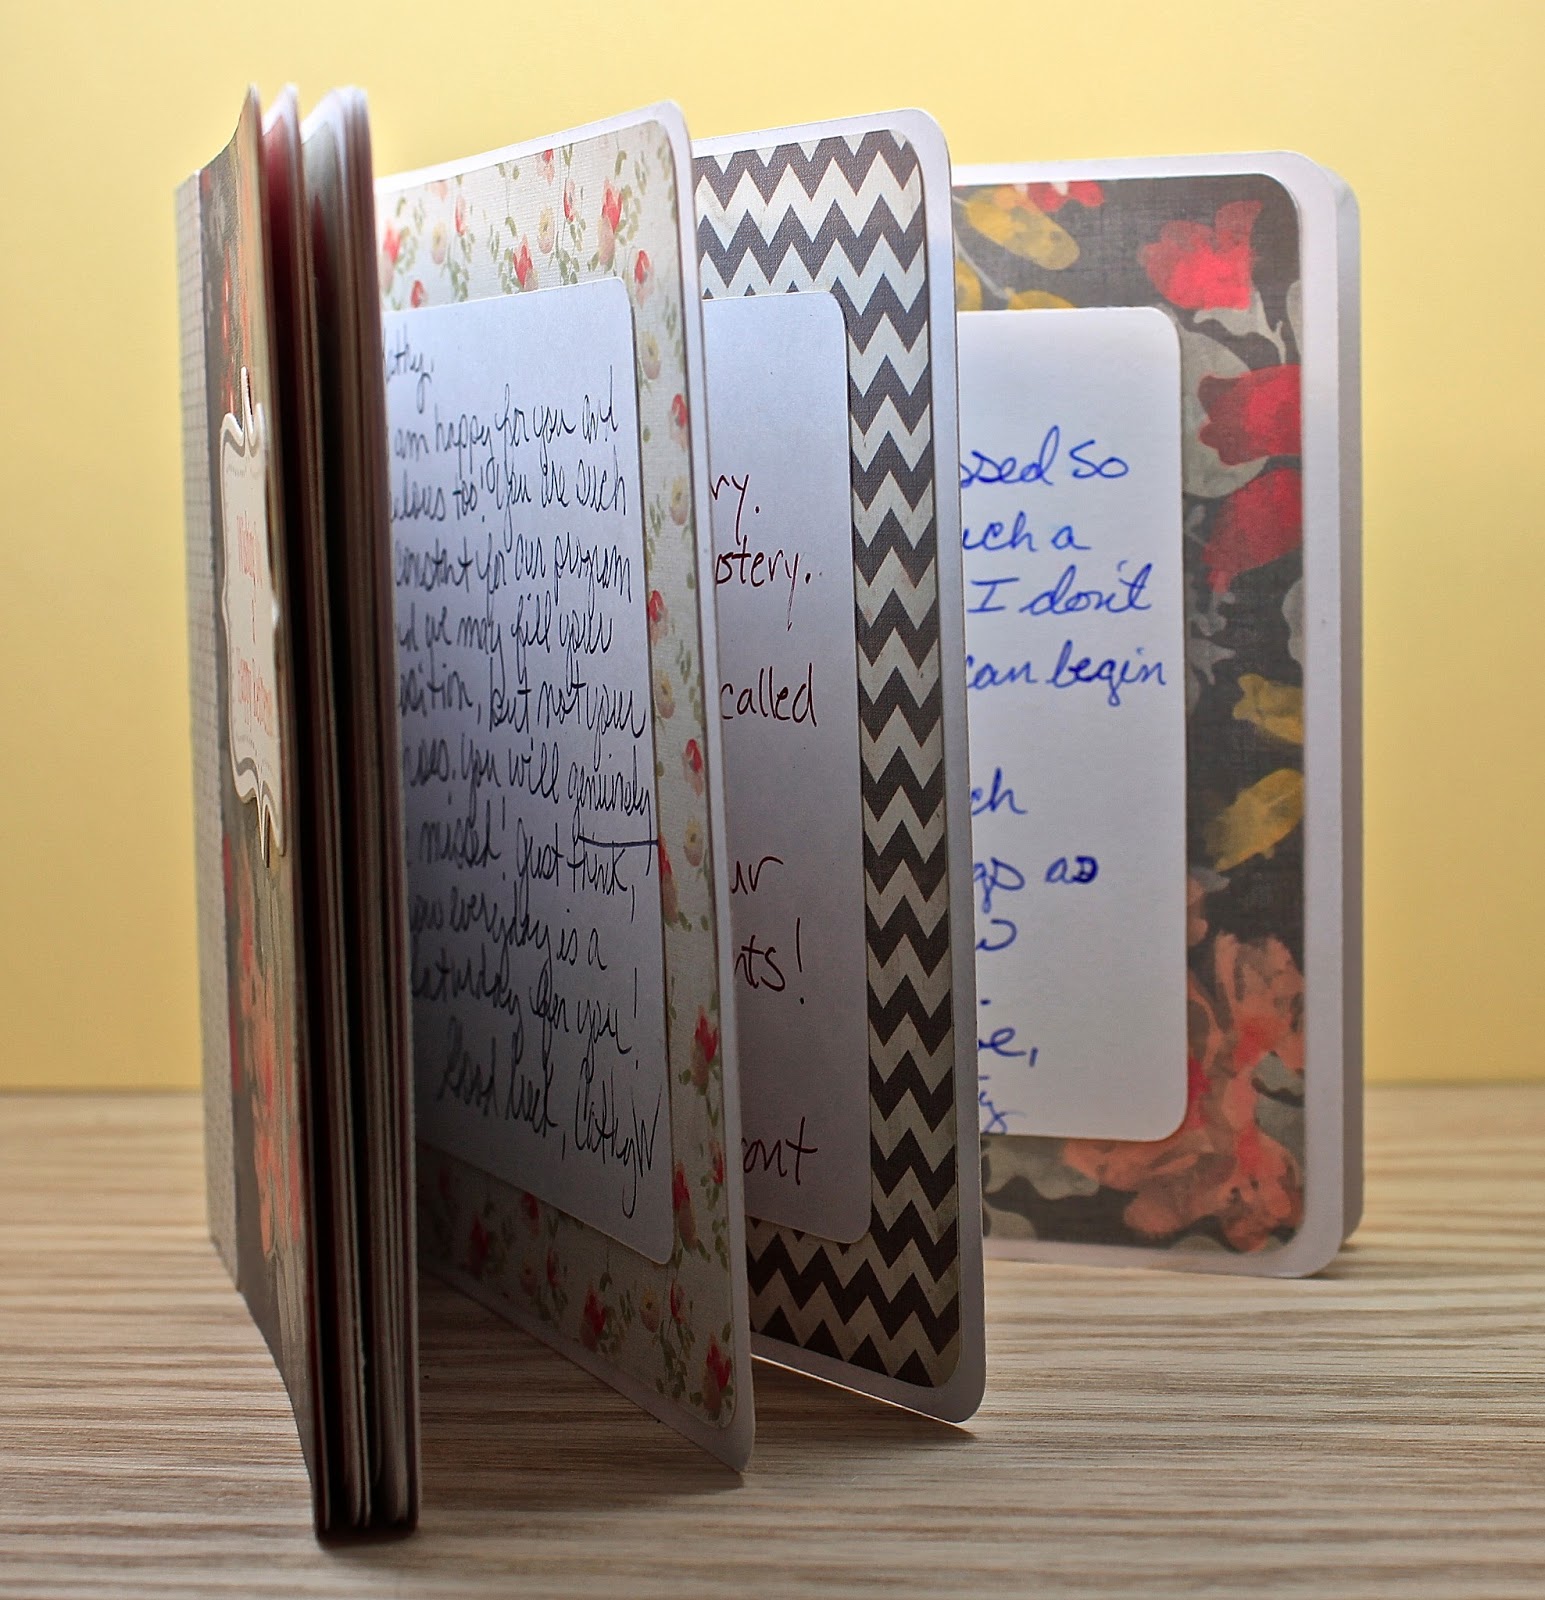 athy,
am happy for you and
too! You are such
constant for our program
nd we may fill your
osition, but not your
you will genuinely
missed! Just think,
everyday is a
Saturday for you!
Good luck, CathyW
ry.
stery.
called
ur
nts!
ont
ssed so
uch a
I don't
can begin
ch
gs as
w
e,